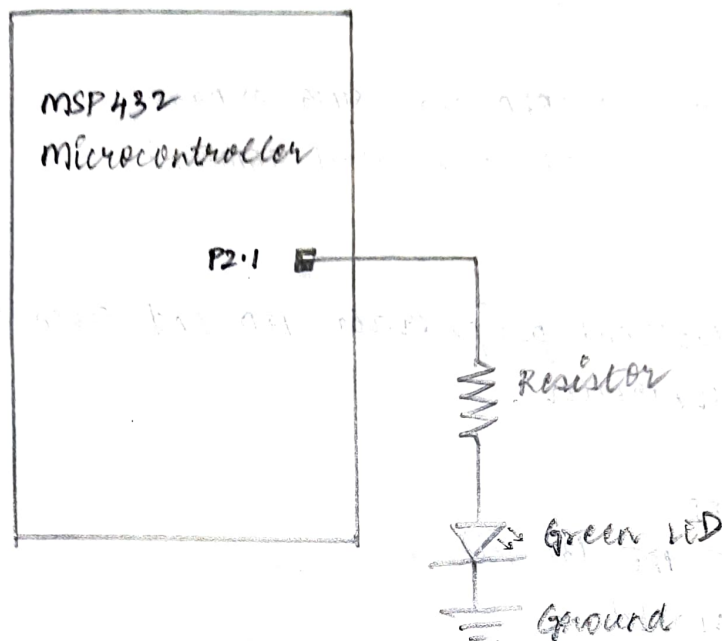 MSP432
Microcontroller
P2.1
Resistor
Green LED
Ground